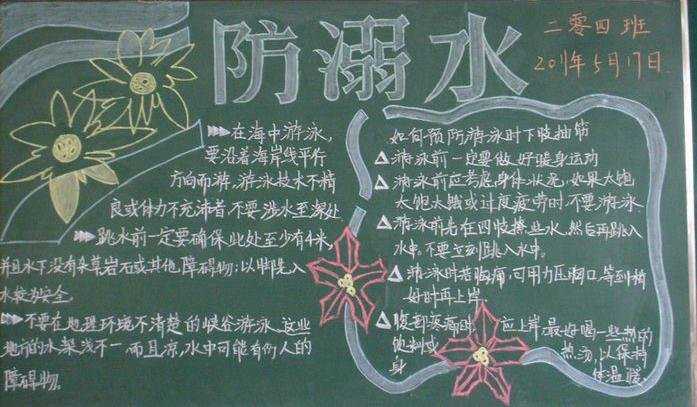 防溺水
二零四班
2019年5月17日
在海中游泳，
要沿着海岸线平行
方向而游，游泳技术不精
良或体力不充沛者，不要涉水至深处
跳水前一定要确保此处至少有4米，
并且水下没有杂草岩石或其他障碍物；以脚先入
水较为安全
不要在地理环境不清楚的峡谷游泳，这些
地方的水深浅不一，而且凉，水中可能有伤人的
障碍物。
如何预防游泳时下肢抽筋
游泳前一定要做好暖身运动
游泳前应考虑身体状况，如果太饱
太饿或过度疲劳时，不要游泳
游泳前先在四肢擦些水，然后再跳入
水中。不要立刻跳入水中。
游泳时若胸痛，可用力压胸口，等到稍
好时再上岸
腹部疼痛时 应上岸，最好喝一些热的
饮料或 热汤，以保持
身 体温暖